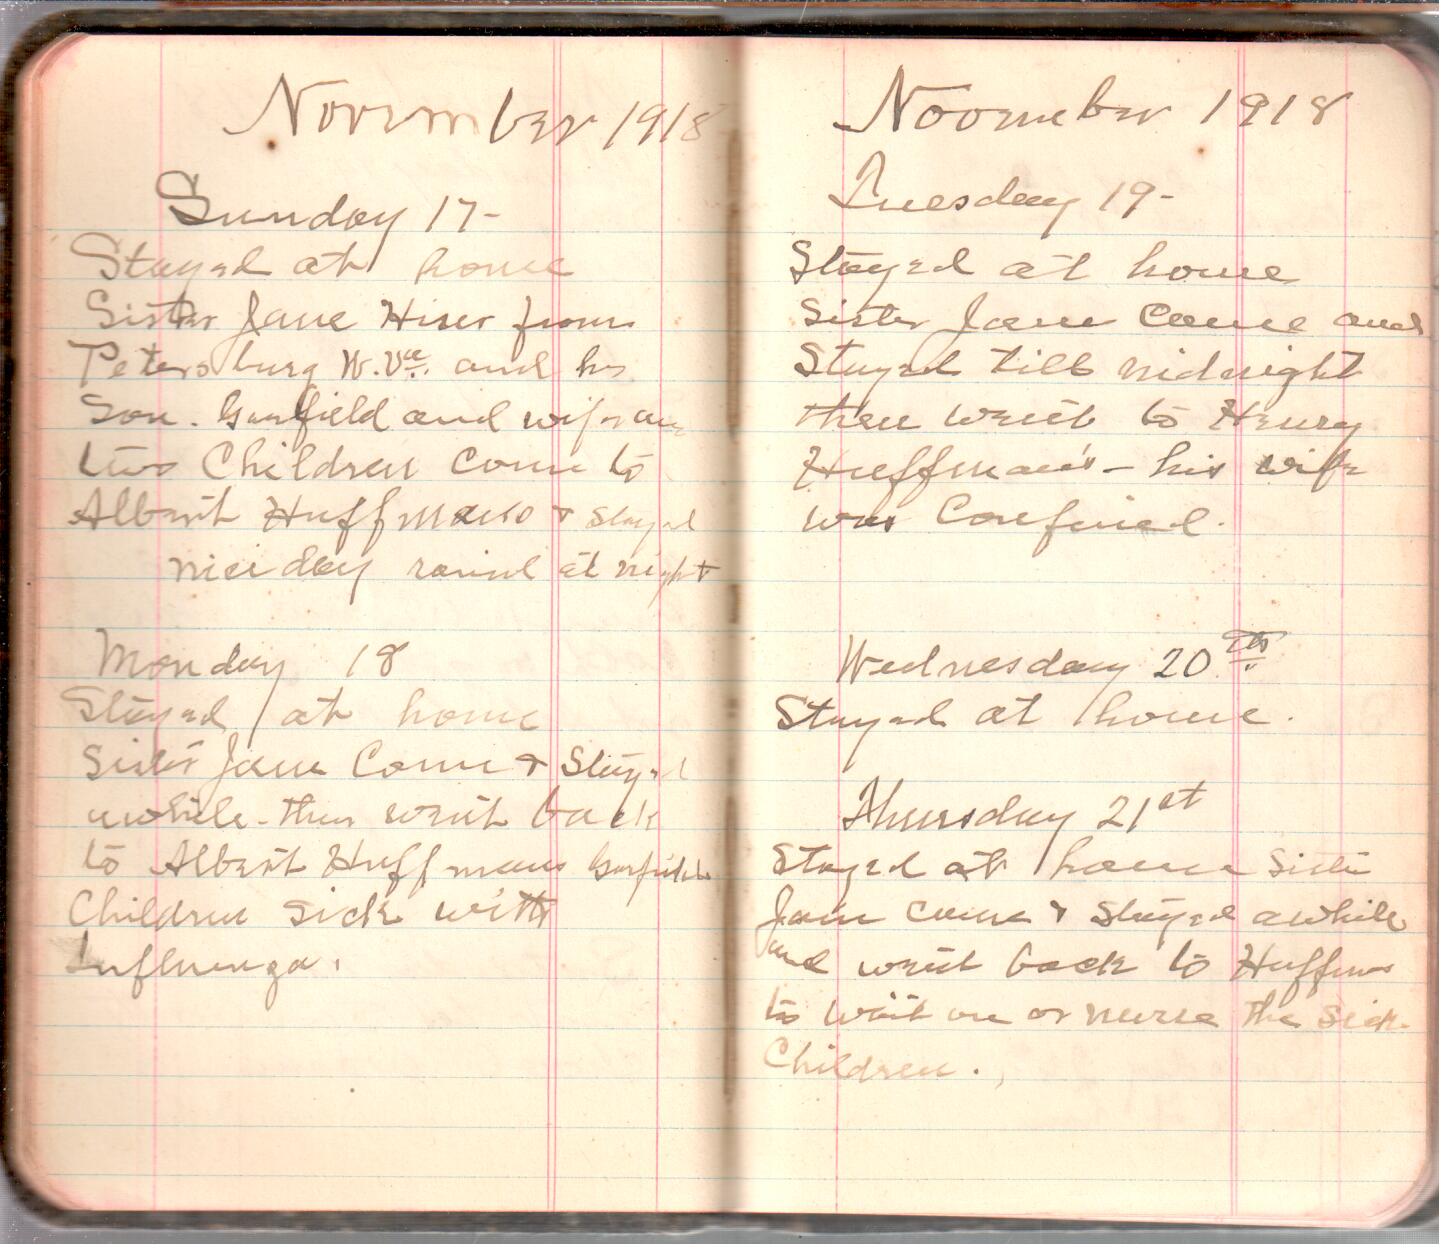 November 1918
Sunday 17-
Stayed at home
Sister Jane Hiser from
Petersburg W.Va. and his
Son. Garfield and wife an
two Children come to
Albert Huffmans & Stayed
nice day rained at night
Monday 18
Stayed at home
Sister Jane Come & Stayed
awhile - then went back
to Albert Huffmans Garfields
Children sick with
Influenza.
November 1918
Tuesday 19-
Stayed at home
Sister Jane Came and
Stayed till midnight
then went to Henry
Huffman's - his wife
was Confined.
Wednesday 20th
Stayed at home.
Thursday 21st
Stayed at home Sister
Jane came & Stayed awhile
and went back to Huffmans
to wait on or nurse the sick
Children.